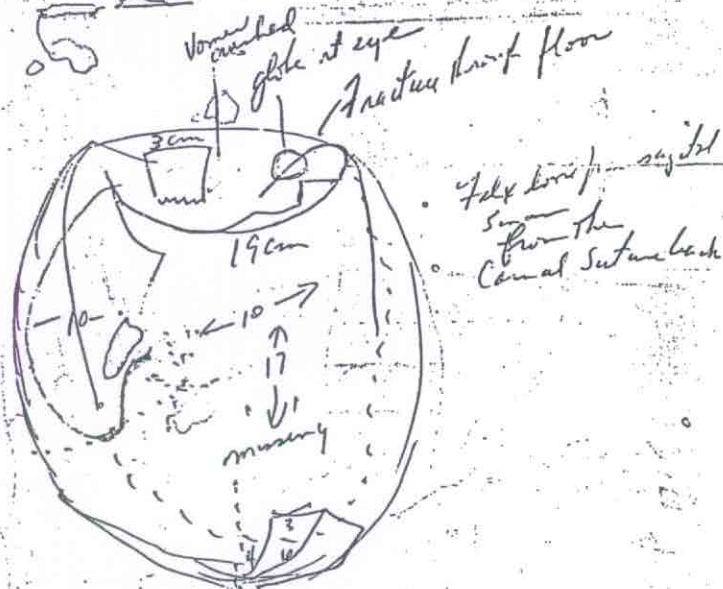 Vomer crushed
globe rt eye
Fracture through floor
3 cm
Falx loose from sagital
sinus
from the
Coronal Suture back
19 cm
10
10
17
missing
3
4
6